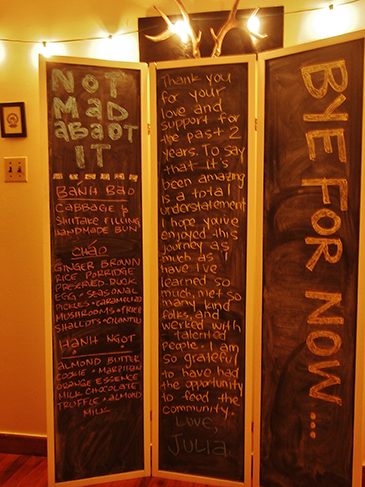 NOT
MAD
ABOOT
IT
BANH BAO
CABBAGE &
SHIITAKE FILLING
HANDMADE BUN
CHÁO
GINGER BROWN
RICE PORRIDGE
PRESERVED DUCK
EGG • SEASONAL
PICKLES • CARAMELIZED
MUSHROOMS • FRIED
SHALLOTS • CILANTRO
HANH NGOT
ALMOND BUTTER
COOKIE • MARZIPAN
ORANGE ESSENCE
MILK CHOCOLATE
TRUFFLE • ALMOND
MILK
Thank you
for your
love and
support for
the past 2
years. To say
that it's
been amazing
is a total
understatement
I hope you've
enjoyed this
journey as
much as I
have. I've
learned so
much, met so
many kind
folks, and
worked with
talented
people. I am
so grateful
to have had
the opportunity
to feed the
community.
Love,
Julia
BYE FOR NOW...